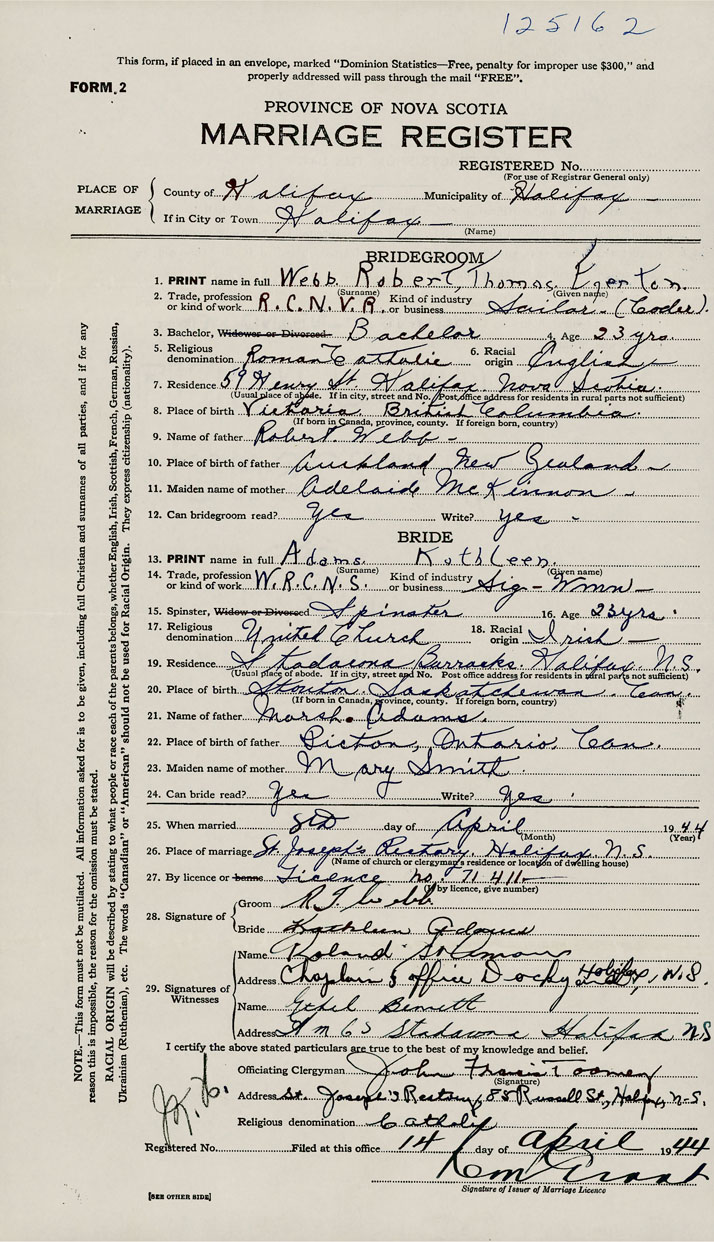 125162
This form, if placed in an envelope, marked "Dominion Statistics—Free, penalty for improper use $300," and
properly addressed will pass through the mail "FREE".
FORM 2
PROVINCE OF NOVA SCOTIA
MARRIAGE REGISTER
REGISTERED No.
(For use of Registrar General only)
PLACE OF MARRIAGE
County of Halifax Municipality of Halifax
If in City or Town Halifax
(Name)
BRIDEGROOM
1. PRINT name in full Webb Robert, Thomas Egerton.
(Surname) (Given name)
2. Trade, profession or kind of work R.C.N.V.R. Kind of industry or business Sailor - (Coder).
3. Bachelor, Widower or Divorced Bachelor 4. Age 23 yrs.
5. Religious denomination Roman Catholic 6. Racial origin English
7. Residence 59 Henry St. Halifax Nova Scotia.
(Usual place of abode. If in city, street and No. Post office address for residents in rural parts not sufficient)
8. Place of birth Victoria British Columbia.
(If born in Canada, province, county. If foreign born, country)
9. Name of father Robert Webb -
10. Place of birth of father Auckland New Zealand -
11. Maiden name of mother Adelaide McKinnon -
12. Can bridegroom read? Yes Write? yes -
BRIDE
13. PRINT name in full Adams Kathleen.
(Surname) (Given name)
14. Trade, profession or kind of work W.R.C.N.S. Kind of industry or business Sig - Wmn -
15. Spinster, Widow or Divorced Spinster 16. Age 23 yrs.
17. Religious denomination United Church 18. Racial origin Irish -
19. Residence Stadacona Barracks. Halifax. N.S.
(Usual place of abode. If in city, street and No. Post office address for residents in rural parts not sufficient)
20. Place of birth Saskatchewan. Can.
(If born in Canada, province, county. If foreign born, country)
21. Name of father Marsh. Adams.
22. Place of birth of father Picton, Ontario, Can.
23. Maiden name of mother Mary Smith.
24. Can bride read? Yes Write? Yes
25. When married 8th day of April 1944
(Month) (Year)
26. Place of marriage St. Joseph's Rectory. Halifax. N.S.
(Name of church or clergyman's residence or location of dwelling house)
27. By licence or banns Licence no. 71411
(If by licence, give number)
28. Signature of
Groom R.T. Webb
Bride Kathleen Adams
29. Signatures of Witnesses
Name Roland
Address Chaplain's office Dockyard Halifax, N.S.
Name Ethel Bennett
Address Stadacona Halifax NS
I certify the above stated particulars are true to the best of my knowledge and belief.
Officiating Clergyman John Francis Toomey
(Signature)
Address St. Joseph's Rectory, 85 Russell St., Halifax, N.S.
Religious denomination Catholic
Registered No. Filed at this office 14 day of April 1944
Grant
Signature of Issuer of Marriage Licence
[SEE OTHER SIDE]
NOTE.—This form must not be mutilated. All information asked for is to be given, including full Christian and surnames of all parties, and if for any
reason this is impossible, the reason for the omission must be stated.
RACIAL ORIGIN will be described by stating to what people or race each of the parents belongs, whether English, Irish, Scottish, French, German, Russian,
Ukrainian (Ruthenian), etc. The words "Canadian" or "American" should not be used for Racial Origin. They express citizenship (nationality).